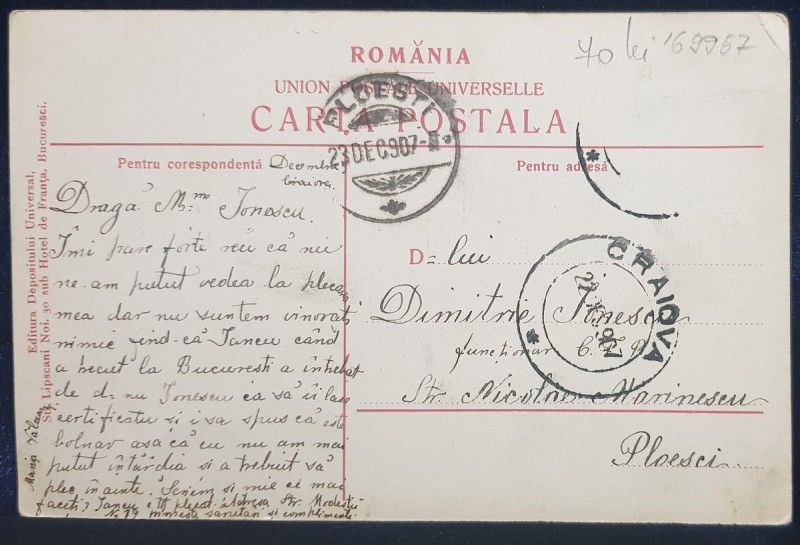 70 lei 169957
ROMÂNIA
UNION POSTALE UNIVERSELLE
CARTA POSTALA
PLOESTI
23 DEC 907
Pentru corespondentă
Pentru adresă
Decembrie
Craiova
Editura Depositului Universal,
Str. Lipscani Noi. 30 sub Hotel de Franța, Bucuresci.
Dragă M.me Ionescu.
Îmi pare forte reu că nu
ne-am putut vedea la plecarea
mea dar nu suntem vinovați
nimic find-că Iancu când
a trecut la Bucuresti a întrebat
de d-nu Ionescu ca să îi lase
certificatu și i sa spus că este
bolnav asa că eu nu am mai
putut întârdia si a trebuit să
plec înainte. Scriem si mie ce mai
faceti? Iancu e tot plecat. Adresa Str. Modestii
No 79 si complimente
Maria
D-lui
Dimitrie Ionescu
functionar C.F.R.
Str. Nicolae Marinescu
Ploesci
CRAIOVA
22 907